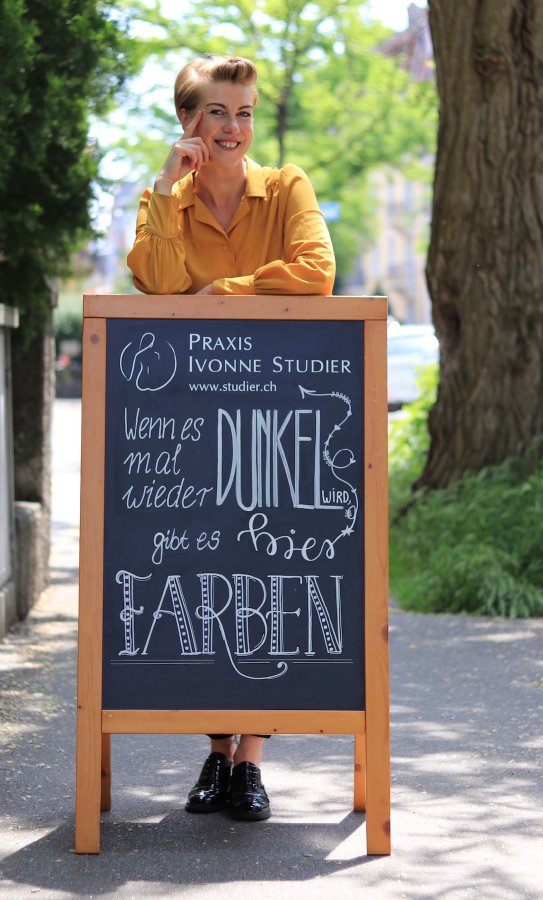 PRAXIS
IVONNE STUDIER
www.studier.ch
Wenn es
mal
wieder
DUNKEL
WIRD,
gibt es hier
FARBEN